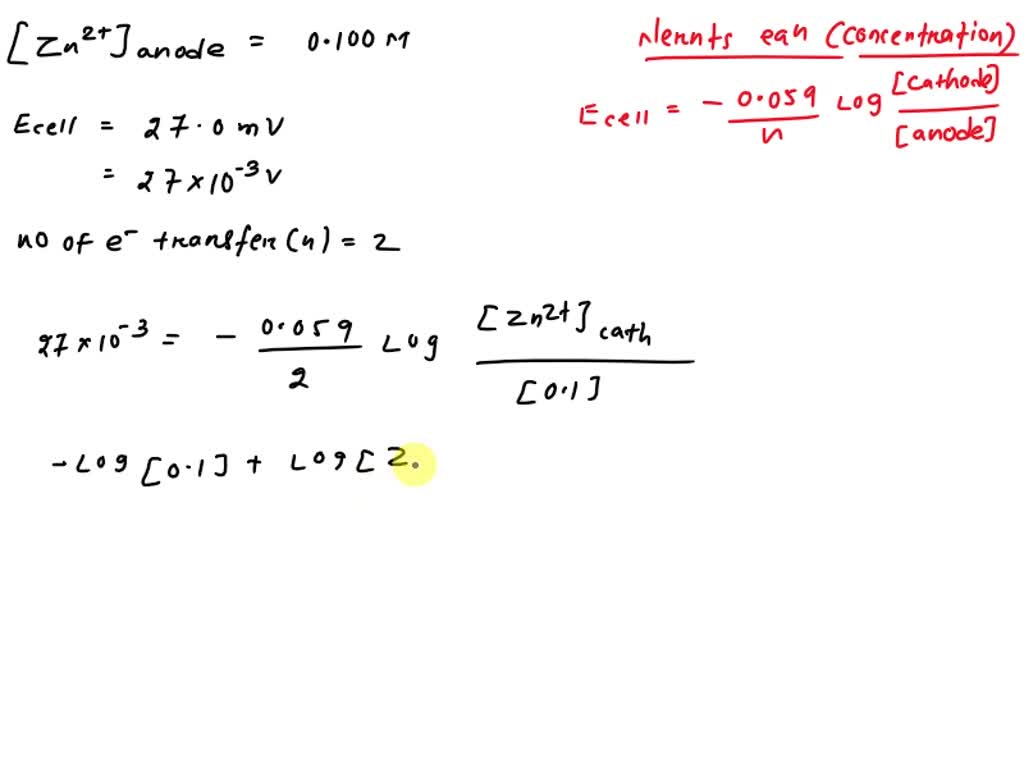 [Zn2+]anode = 0.100 M
Nernts eqn (concentration)
Ecell = - 0.059/n Log [cathode]/[anode]
Ecell = 27.0 mV
= 27×10-3 V
no of e- transfer (n) = 2
27×10-3 = - 0.059/2 Log [Zn2+]cath/[0.1]
-Log [0.1] + Log [Z